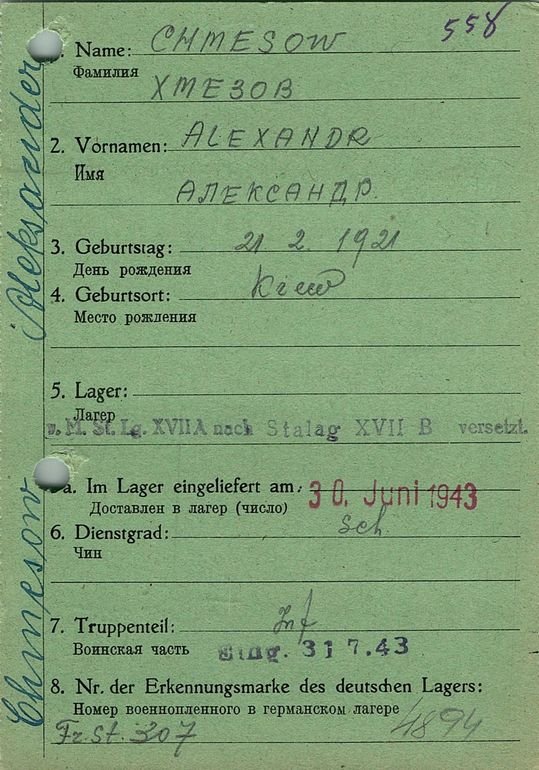 558
Name: CHMESOW
Фамилия
ХМЕЗОВ
2. Vornamen: ALEXANDR
Имя
АЛЕКСАНДР.
3. Geburtstag: 21 2. 1921
День рождения
4. Geburtsort: Kiew
Место рождения
5. Lager:
Лагер
v. M. St. Lg. XVIIA nach Stalag XVII B versetzt.
a. Im Lager eingeliefert am: 30. Juni 1943
Доставлен в лагер (число)
6. Dienstgrad: Sch.
Чин
7. Truppenteil: Inf
Воинская часть Eing. 31 7.43
8. Nr. der Erkennungsmarke des deutschen Lagers:
Номер военнопленного в германском лагере
Fr. St. 307 4894
Chmesow Aleksander